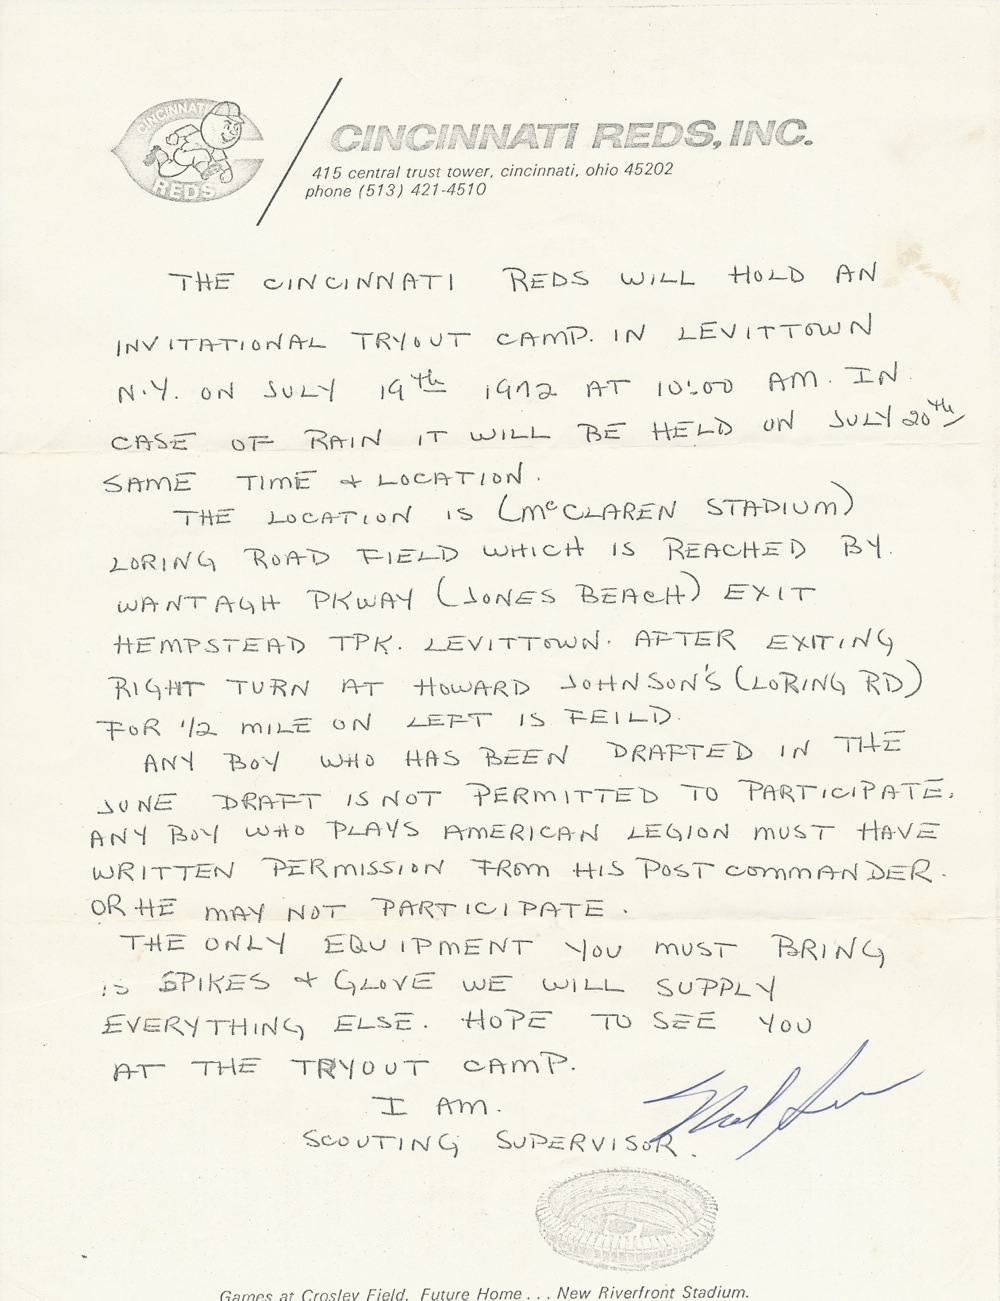 CINCINNATI
REDS
CINCINNATI REDS, INC.
415 central trust tower, cincinnati, ohio 45202
phone (513) 421-4510
THE CINCINNATI REDS WILL HOLD AN
INVITATIONAL TRYOUT CAMP. IN LEVITTOWN
N.Y. ON JULY 19th 1972 AT 10:00 AM. IN
CASE OF RAIN IT WILL BE HELD ON JULY 20th
SAME TIME & LOCATION.
THE LOCATION IS (McCLAREN STADIUM)
LORING ROAD FIELD WHICH IS REACHED BY.
WANTAGH PKWAY (JONES BEACH) EXIT
HEMPSTEAD TPK. LEVITTOWN. AFTER EXITING
RIGHT TURN AT HOWARD JOHNSON'S (LORING RD)
FOR 1/2 MILE ON LEFT IS FEILD.
ANY BOY WHO HAS BEEN DRAFTED IN THE
JUNE DRAFT IS NOT PERMITTED TO PARTICIPATE.
ANY BOY WHO PLAYS AMERICAN LEGION MUST HAVE
WRITTEN PERMISSION FROM HIS POST COMMANDER.
OR HE MAY NOT PARTICIPATE.
THE ONLY EQUIPMENT YOU MUST BRING
IS SPIKES & GLOVE WE WILL SUPPLY
EVERYTHING ELSE. HOPE TO SEE YOU
AT THE TRYOUT CAMP.
I AM.
SCOUTING SUPERVISOR.
Games at Crosley Field, Future Home . . . New Riverfront Stadium.